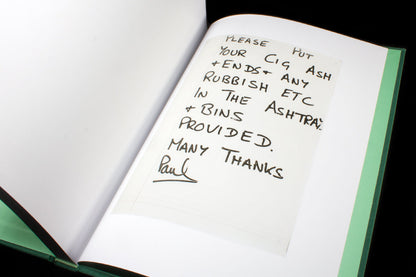 PLEASE PUT
YOUR CIG ASH
+ ENDS + ANY
RUBBISH ETC
IN THE ASHTRAYS
+ BINS
PROVIDED.
MANY THANKS
Paul